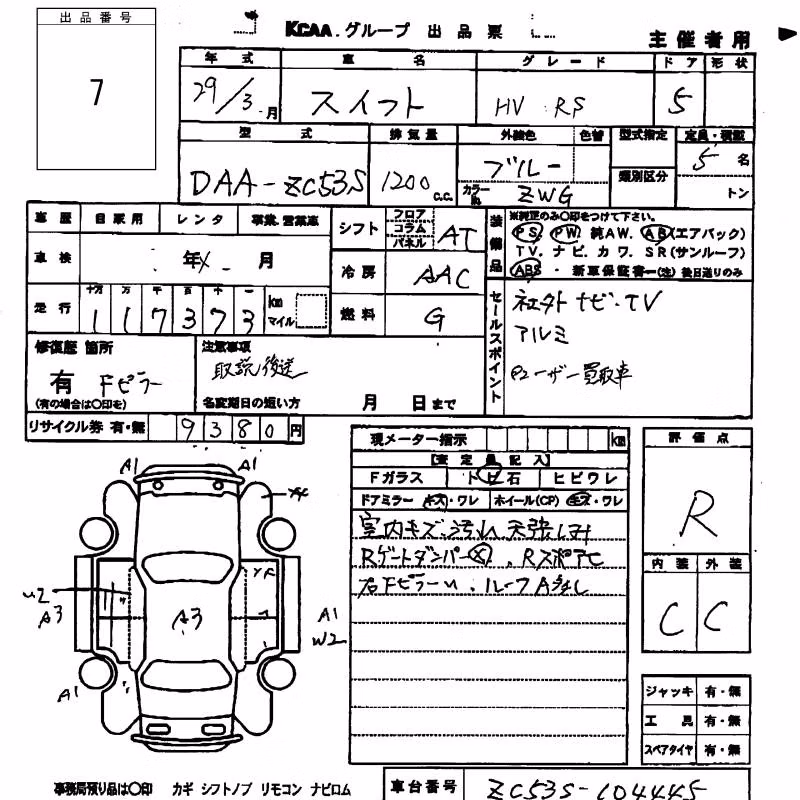 出品番号
7
KCAA.グループ 出品票
主催者用
年式 車名 グレード ドア 形状
29/3月 スイフト HV RS 5
型式 排気量 外装色 色替 型式指定 定員・積載
DAA-ZC53S 1200c.c. ブルー カラーNo. ZWG 類別区分 5名
トン
車歴 自家用 レンタ 事業、営業車
シフト フロア コラム パネル AT
車検 年 月
冷房 AAC
走行 十万 万 千 百 十 一
117373 km マイル
燃料 G
装備品
※純正のみ〇印をつけて下さい。
PS PW 純AW. AB(エアバック)
TV. ナビ. カワ. SR(サンルーフ)
ABS ・ 新車保証書―(注)後日送りのみ
セールスポイント
社外ナビ・TV
アルミ
ユーザー買取車
修復歴 箇所
有 Fピラー
(有の場合は〇印を)
注意事項
取説後送
名変期日の短い方 月 日まで
リサイクル券 有・無 9380円
現メーター指示 km
【査定員記入】
Fガラス トビ石 ヒビワレ
ドアミラー キズ・ワレ ホイール(CP) キズ・ワレ
室内キズ、汚れ 天張シミ
Rゲートダンパー✕, R
右Fピラーu, ルーフA
評価点
R
内装 外装
C C
ジャッキ 有・無
工具 有・無
スペアタイヤ 有・無
A1 A1
U2
A3
A3
A1
W2
A1
事務局預り品は〇印 カギ シフトノブ リモコン ナビロム
車台番号 ZC53S-104445